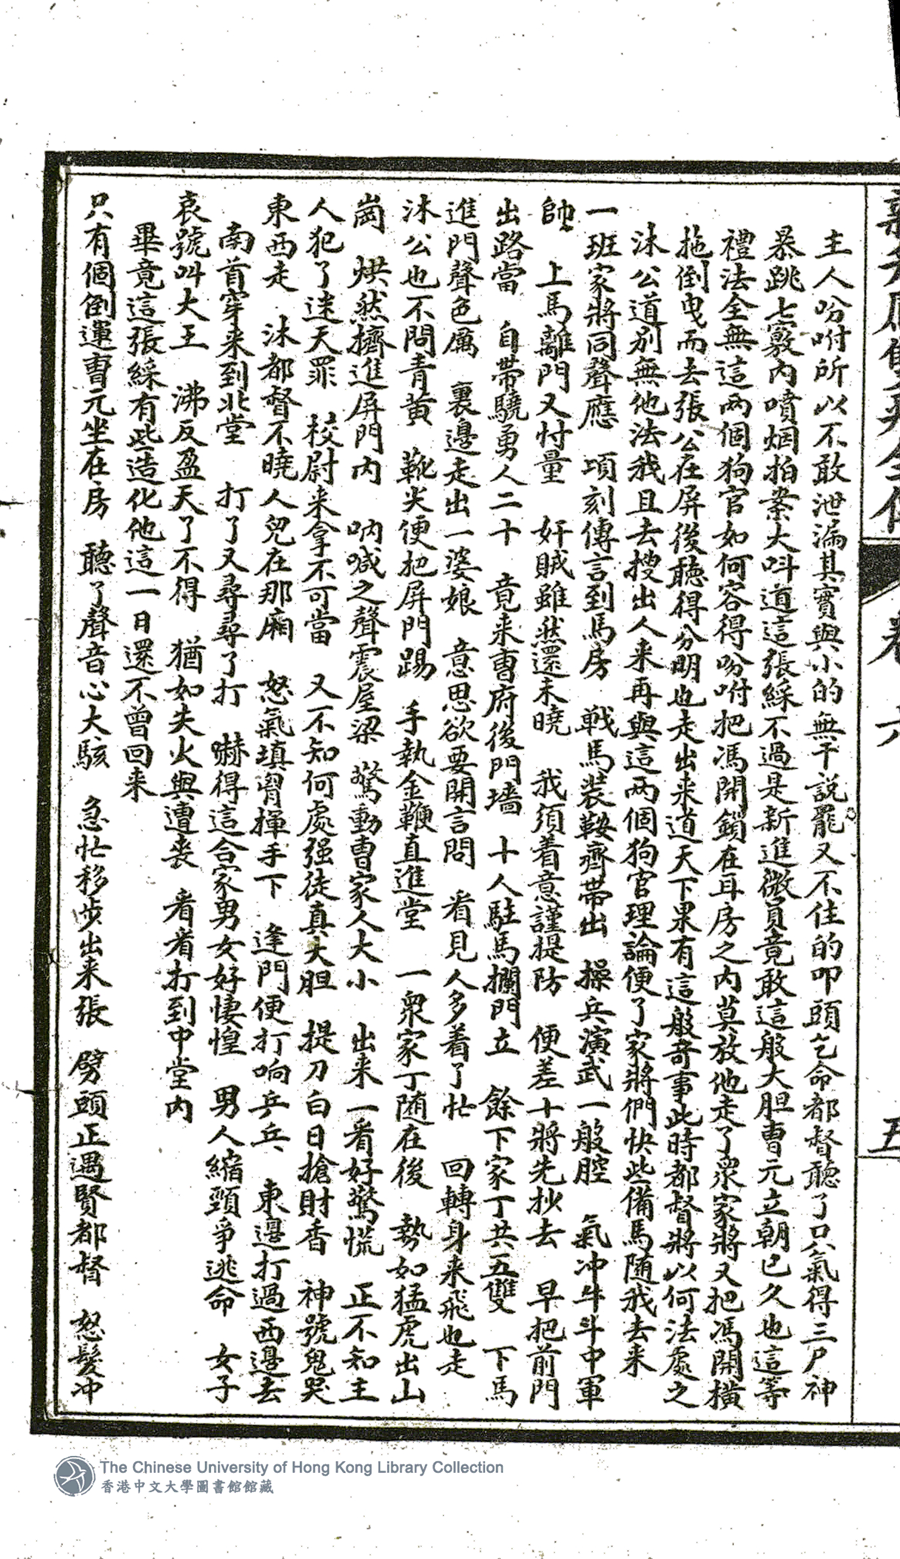 主人吩咐所以不敢泄漏其實與小的無干説罷又不住的叩頭乞命都督聽了只氣得三尸神
暴跳七竅內噴烟拍案大呌道這張綵不過是新進微員竟敢這般大胆曹元立朝已久也這等
禮法全無這两個狗官如何容得吩咐把馮開鎖在耳房之內莫放他走了衆家將又把馮開橫
拖倒曳而去張公在屏後聽得分明也走出来道天下果有這般奇事此時都督將以何法處之
沐公道別無他法我且去搜出人来再與這两個狗官理論便了家將們快些備馬随我去来
一班家將同聲應 項刻傳言到馬房 戰馬装鞍齊帶出 操兵演武一般腔 氣冲牛斗中軍
帥 上馬離門又忖量 奸賊雖然還未曉 我須着意謹提防 便差十將先抄去 早把前門
出路當 自帶驍勇人二十 竟来曹府後門墻 十人駐馬攔門立 餘下家丁共五雙 下馬
進門聲色厲 裏邊走出一婆娘 意思欲要開言問 看見人多着了忙 回轉身来飛也走
沐公也不問青黃 靴尖便把屏門踢 手執金鞭直進堂 一衆家丁随在後 勢如猛虎出山
崗 烘然擠進屏門內 吶喊之聲震屋梁 驚動曹家人大小 出来一看好驚慌 正不知主
人犯了迷天罪 校尉来拿不可當 又不知何處强徒真大胆 提刀白日搶財香 神號鬼哭
東西走 沐都督不曉人兒在那廂 怒氣填胷揮手下 逢門便打响乒乓 東邊打過西邊去
南首穿来到北堂 打了又尋尋了打 嚇得這合家男女好悽惶 男人縮頸爭逃命 女子
哀號叫大王 沸反盈天了不得 猶如失火與遭丧 看看打到中堂內
畢竟這張綵有些造化他這一日還不曾回来
只有個倒運曹元坐在房 聽了聲音心大駭 急忙移步出来張 劈頭正遇賢都督 怒髮冲
卷六
五
The Chinese University of Hong Kong Library Collection
香港中文大學圖書館館藏